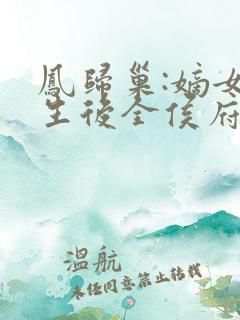 鳳歸巢:嫡女
生後全侯府
溫航
未經同意禁止轉載